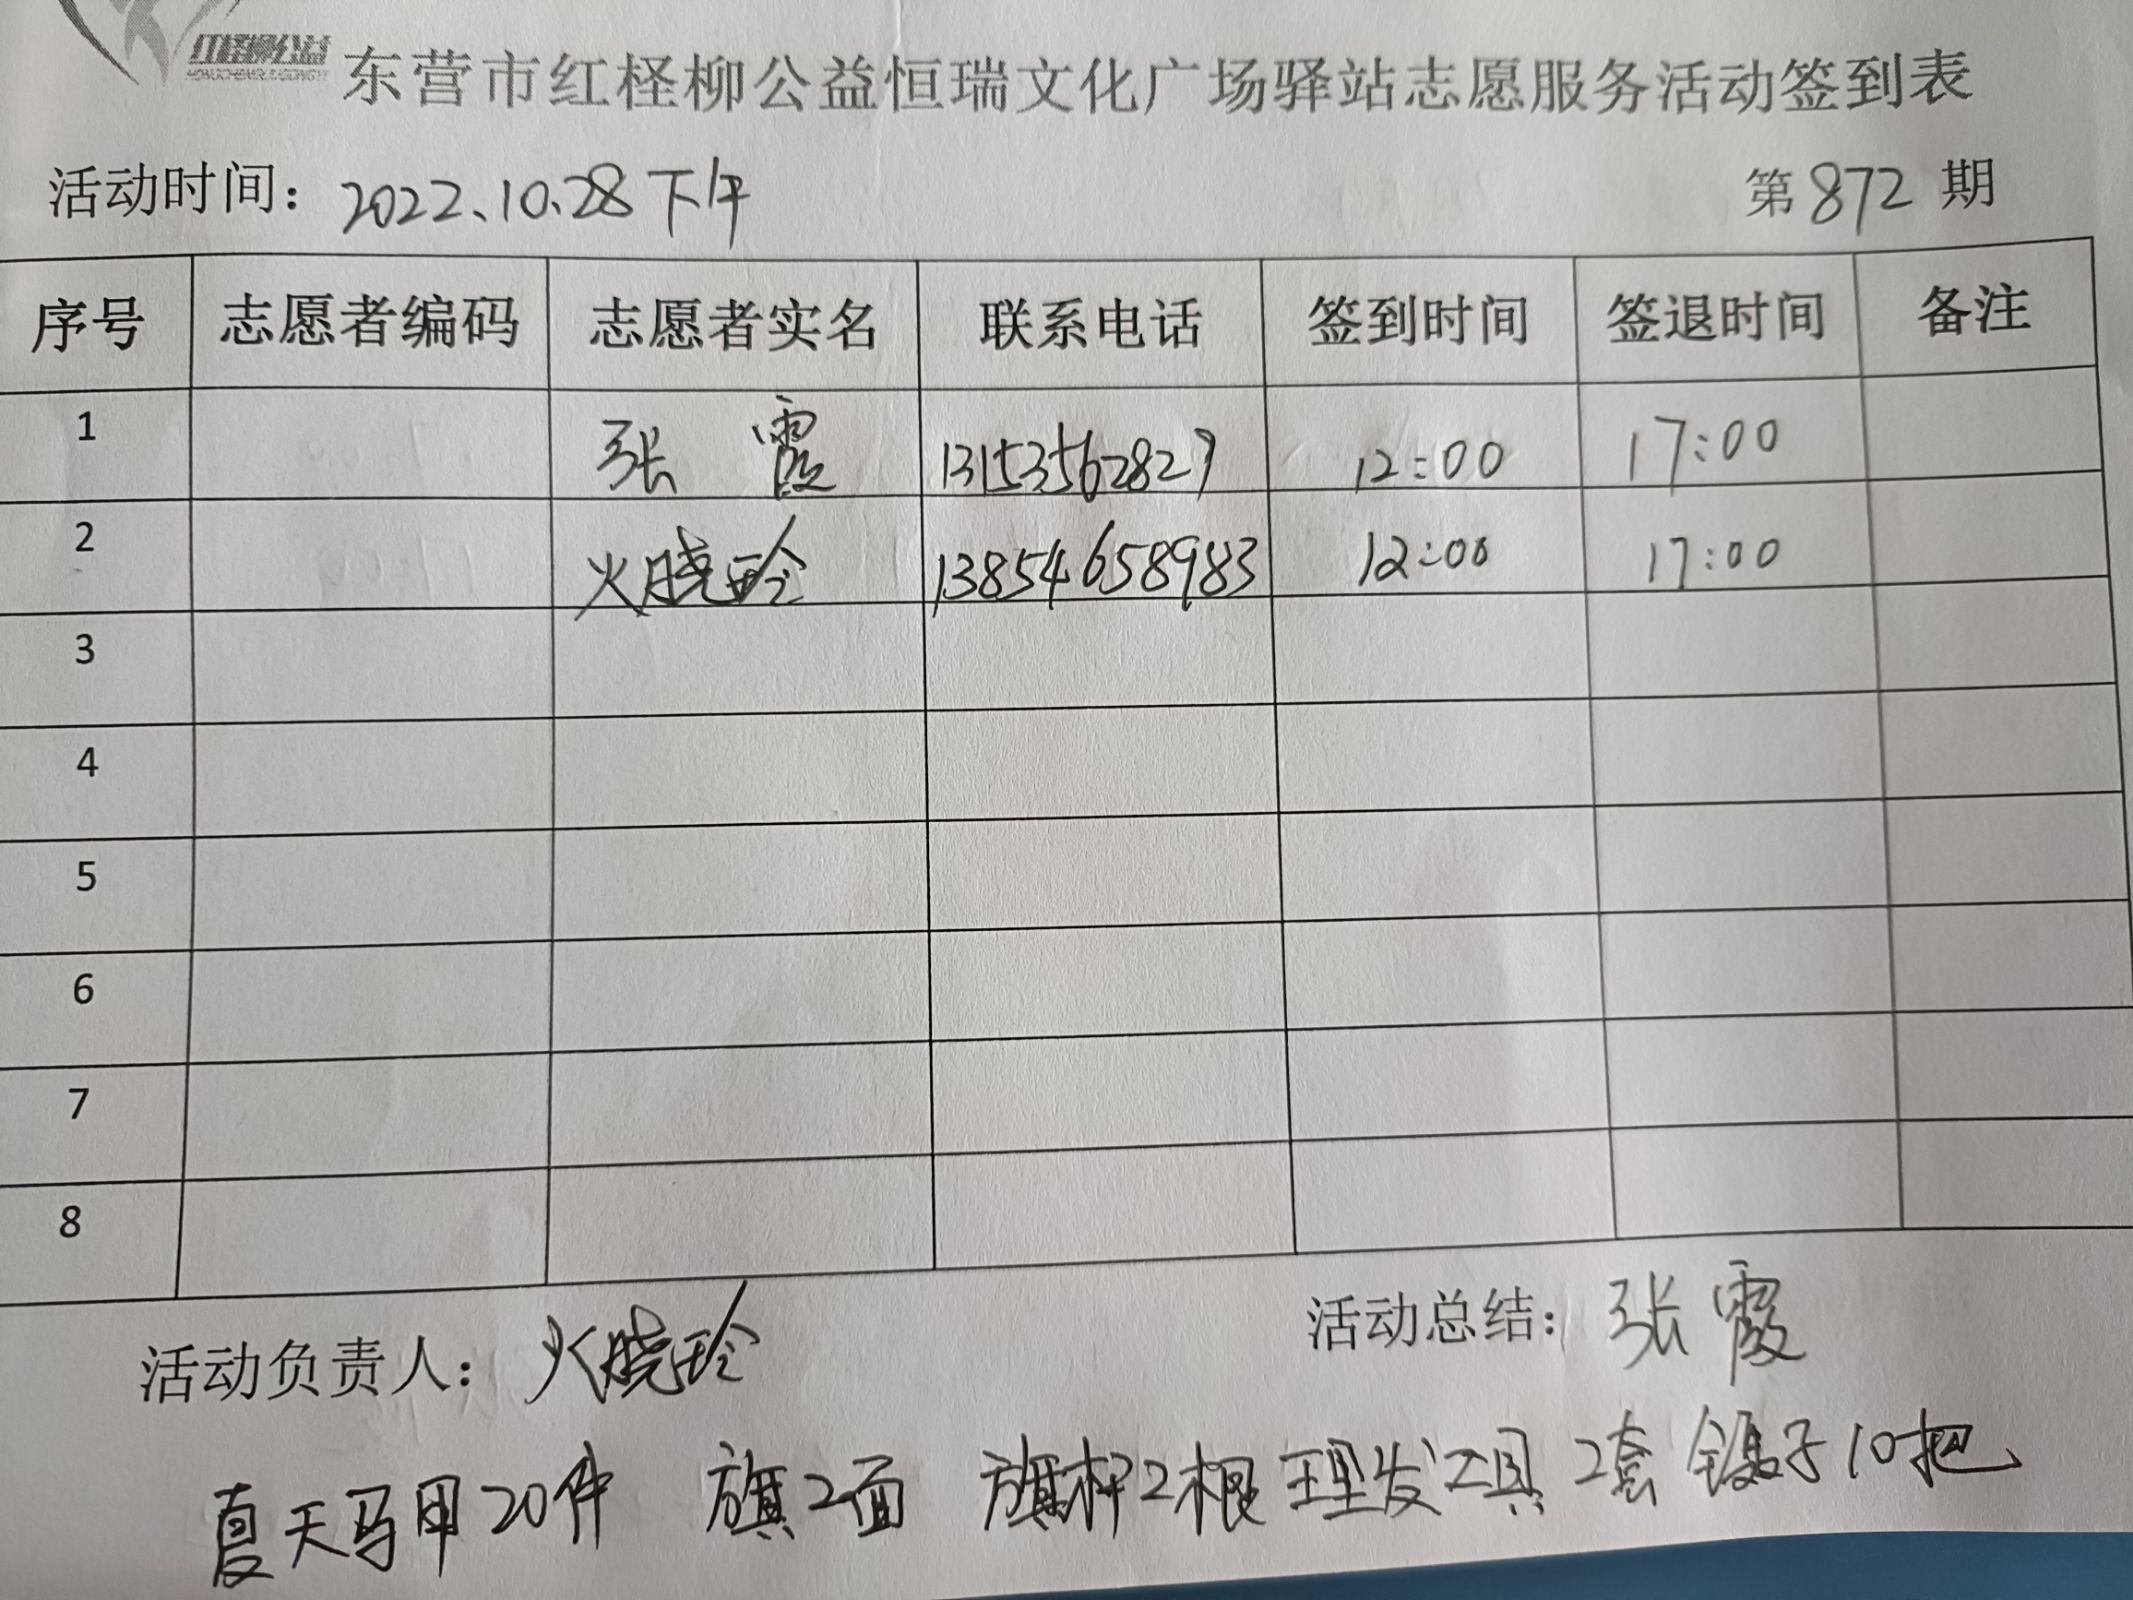 红柽柳公益
HONGCHENGLIUGONGYI
东营市红柽柳公益恒瑞文化广场驿站志愿服务活动签到表
活动时间：2022、10、28下午 第872期
序号 志愿者编码 志愿者实名 联系电话 签到时间 签退时间 备注
1 张霞 13153562827 12:00 17:00
2 火晓玲 13854658983 12:00 17:00
3
4
5
6
7
8
活动负责人：火晓玲 活动总结：张霞
夏天马甲20件 旗2面 旗杆2根 理发工具2套 镊子10把